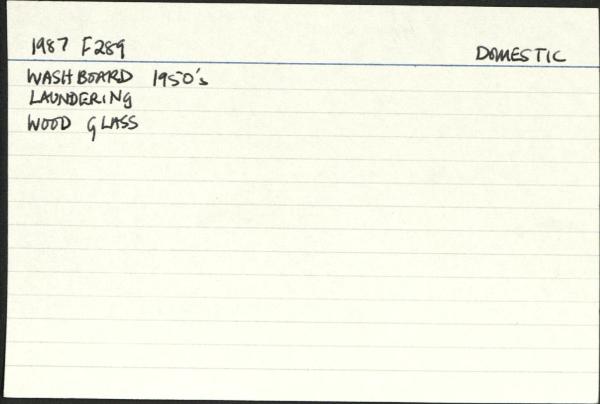 1987 F289 DOMESTIC
WASHBOARD 1950's
LAUNDERING
WOOD GLASS